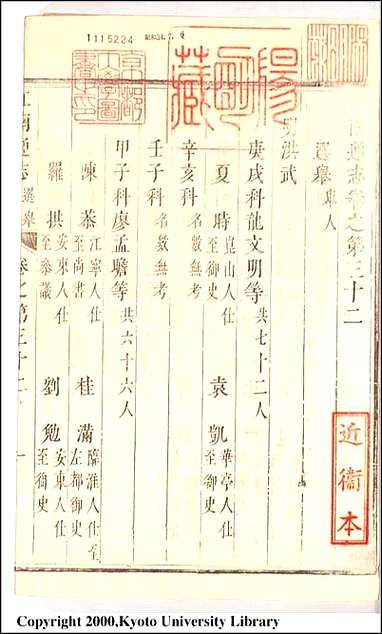 1115234
陽明藏
近衞本
通志卷之第三十二
選舉 舉人
洪武
庚戌科龍文明等 共七十二人
夏時 崑山人仕至御史 袁凱 華亭人仕至御史
辛亥科 名數無考
壬子科 名數無考
甲子科廖孟瞻等 共六十六人
陳恭 江寧人仕至尚書 桂滿 臨淮人仕至左都御史
羅拱 安東人仕至參議 劉勉 安東人仕至御史
江南通志 選舉 卷之第三十二 一
Copyright 2000,Kyoto University Library